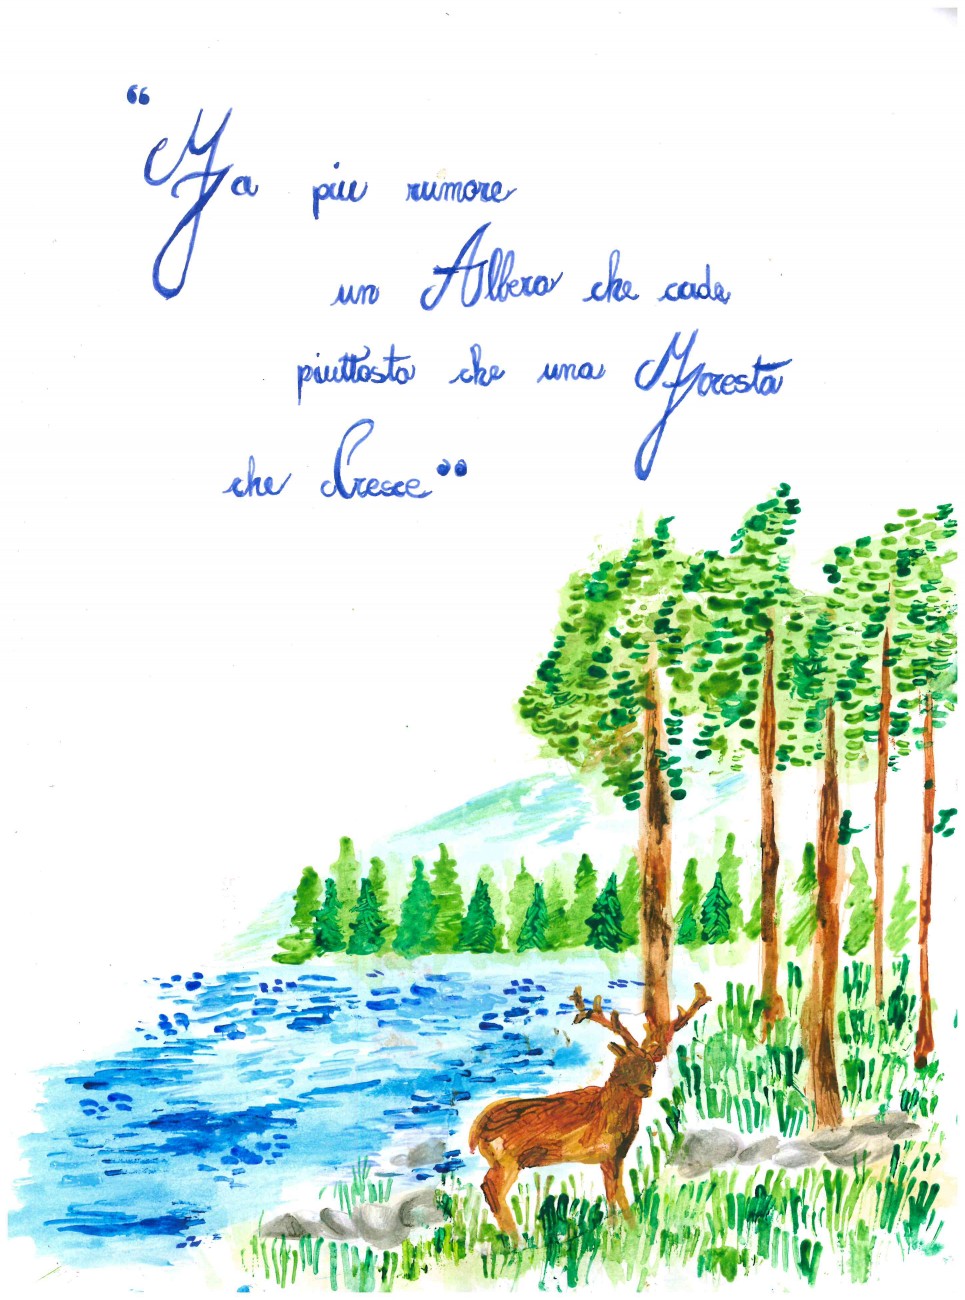 “Fa piu rumore
un Albero che cade
piuttosto che una Foresta
che Cresce”